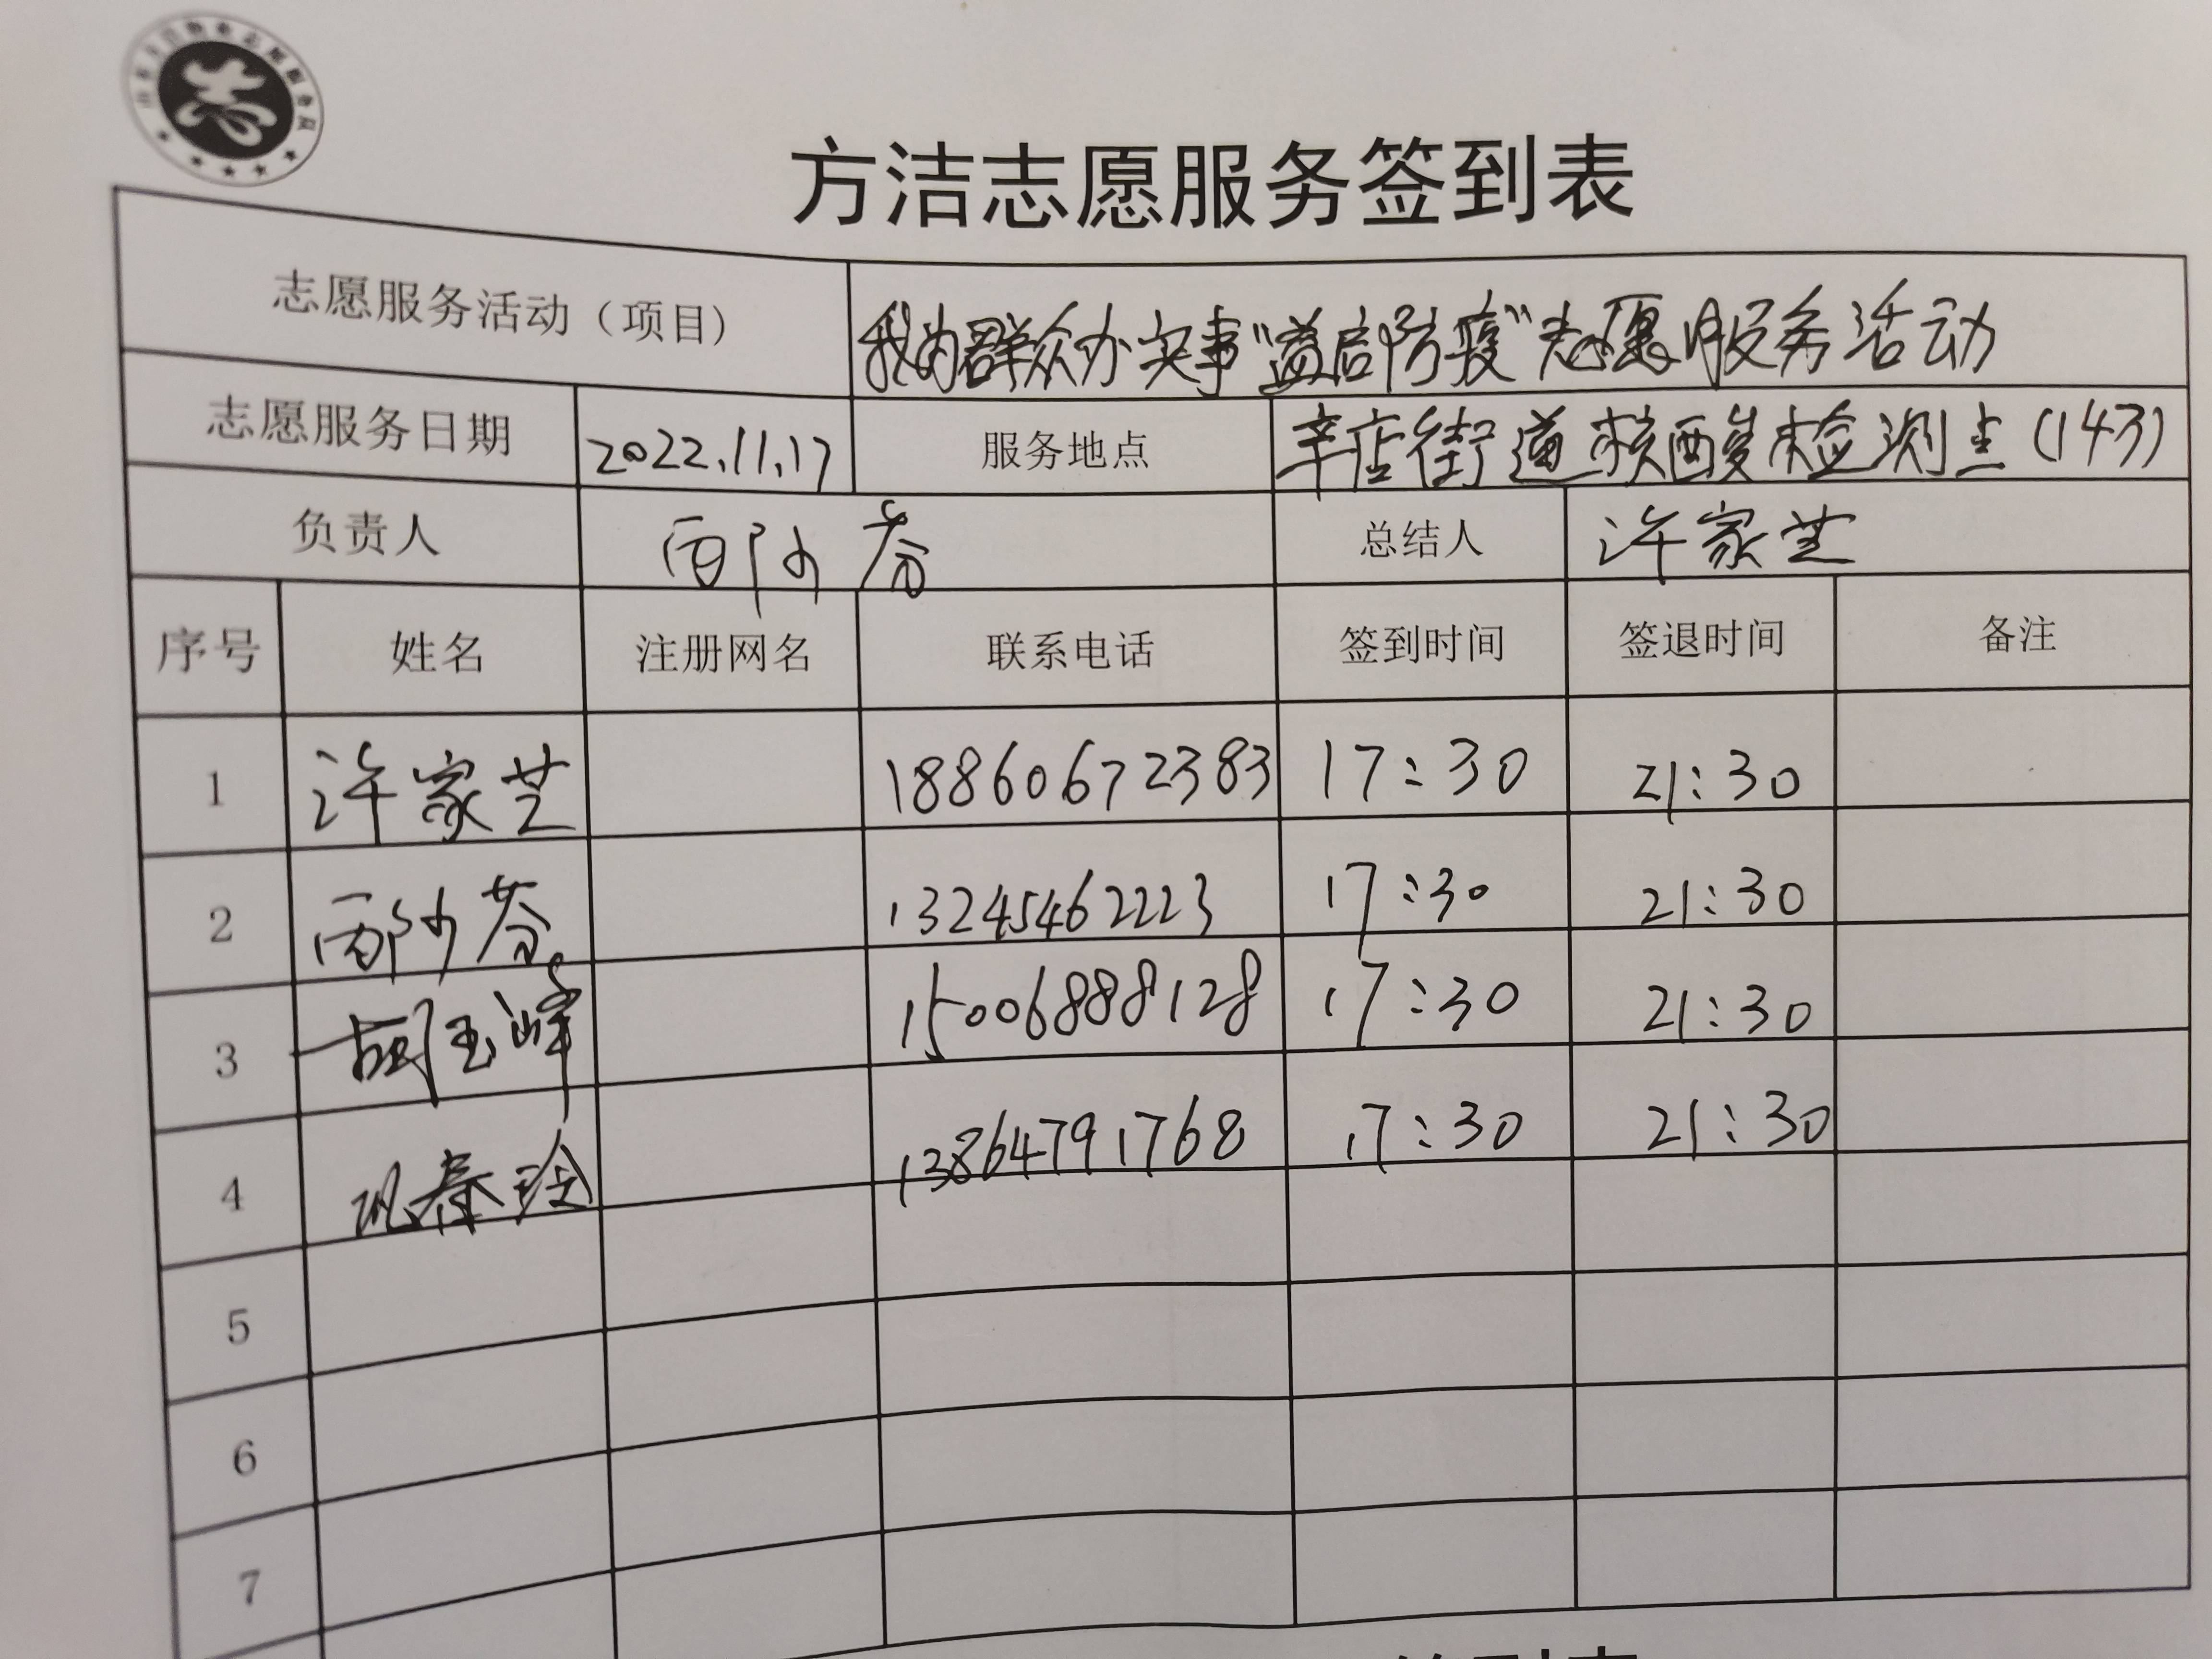 方洁志愿服务签到表
志愿服务活动（项目） 我为群众办实事"益启防疫"志愿服务活动
志愿服务日期 2022.11.17 服务地点 辛店街道核酸检测点(143)
负责人 邴 芬 总结人 许家芝
序号 姓名 注册网名 联系电话 签到时间 签退时间 备注
1 许家芝 18860672383 17:30 21:30
2 邴 芬 13245462223 17:30 21:30
3 胡玉峰 15006888128 17:30 21:30
4 13864791768 17:30 21:30
5
6
7